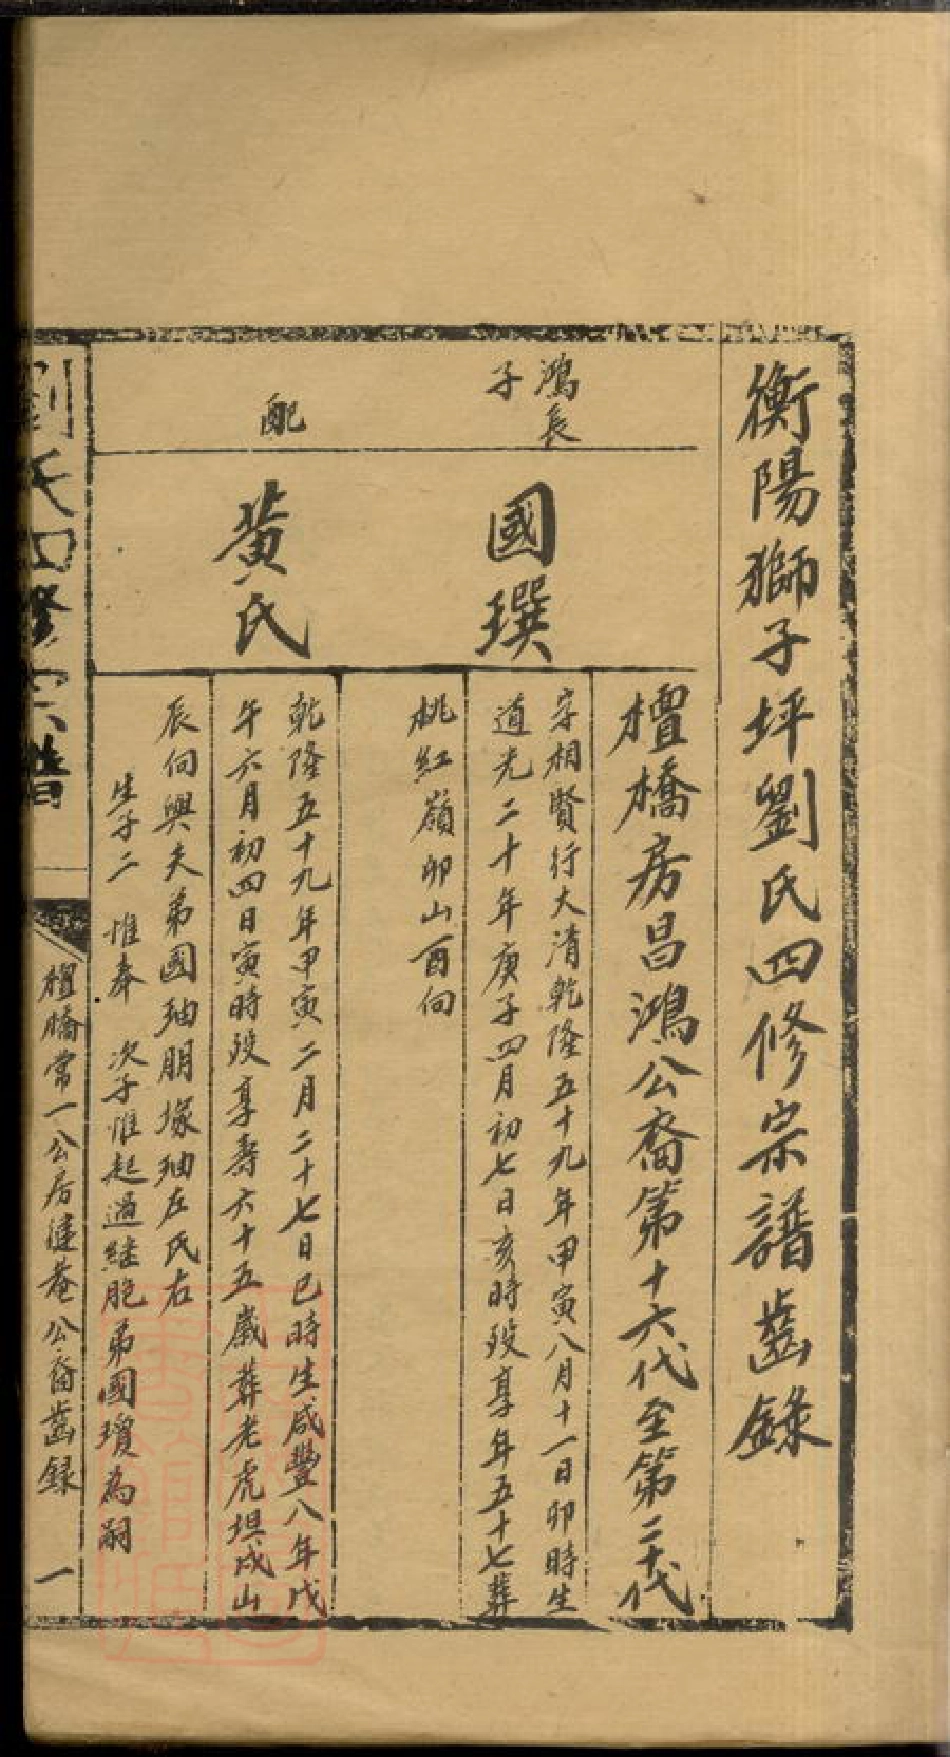 衡陽獅子坪劉氏四修宗譜齒錄
檀橋房昌鴻公裔第十六代至第二十代
鴻長
子
國璵
字相賢行大清乾隆五十九年甲寅八月十一日卯時生
道光二十年庚子四月初七日亥時歿享年五十七葬
桃紅嶺卯山酉向
配
黃氏
乾隆五十九年甲寅二月二十七日巳時生咸豐八年戊
午六月初四日寅時歿享壽六十五歲葬老虎垻戌山
辰向與夫弟國珈朋塚珈左氏右
生子二 惟奉 次子惟起過繼胞弟國瓊為嗣
劉氏四修宗譜
檀橋常一公房 公裔齒錄 一